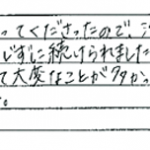 ってくださったので、
じずに続けられました
て大変なことが多かっ
。